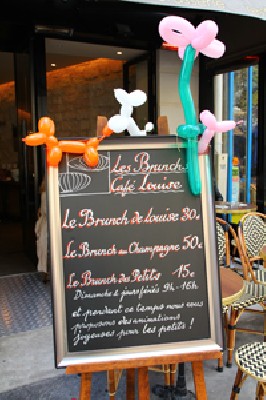 Les Brunch
Café Louise
Le Brunch de Louise 30€
Le Brunch au Champagne 50€
Le Brunch des Petits 15€
Dimanche & jours fériés 12h-16h
et pendant ce temps nous vous
proposons des animations
joyeuses pour les petits !